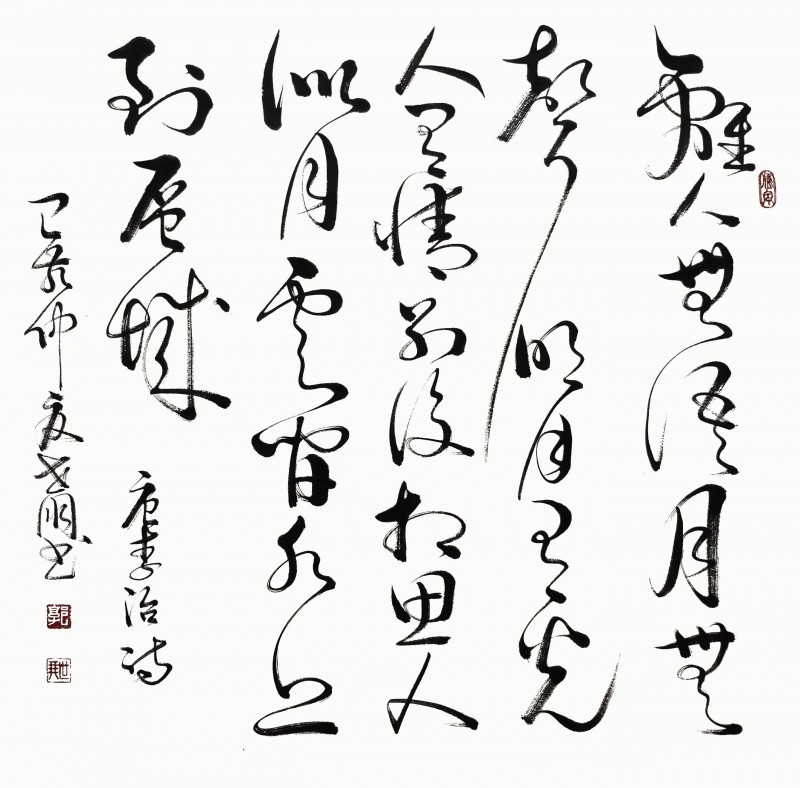 離人無語月無
聲明月有光
人有情別後相思人
似月雲間水上
到層城
唐李冶詩
己亥仲夏世書
郭